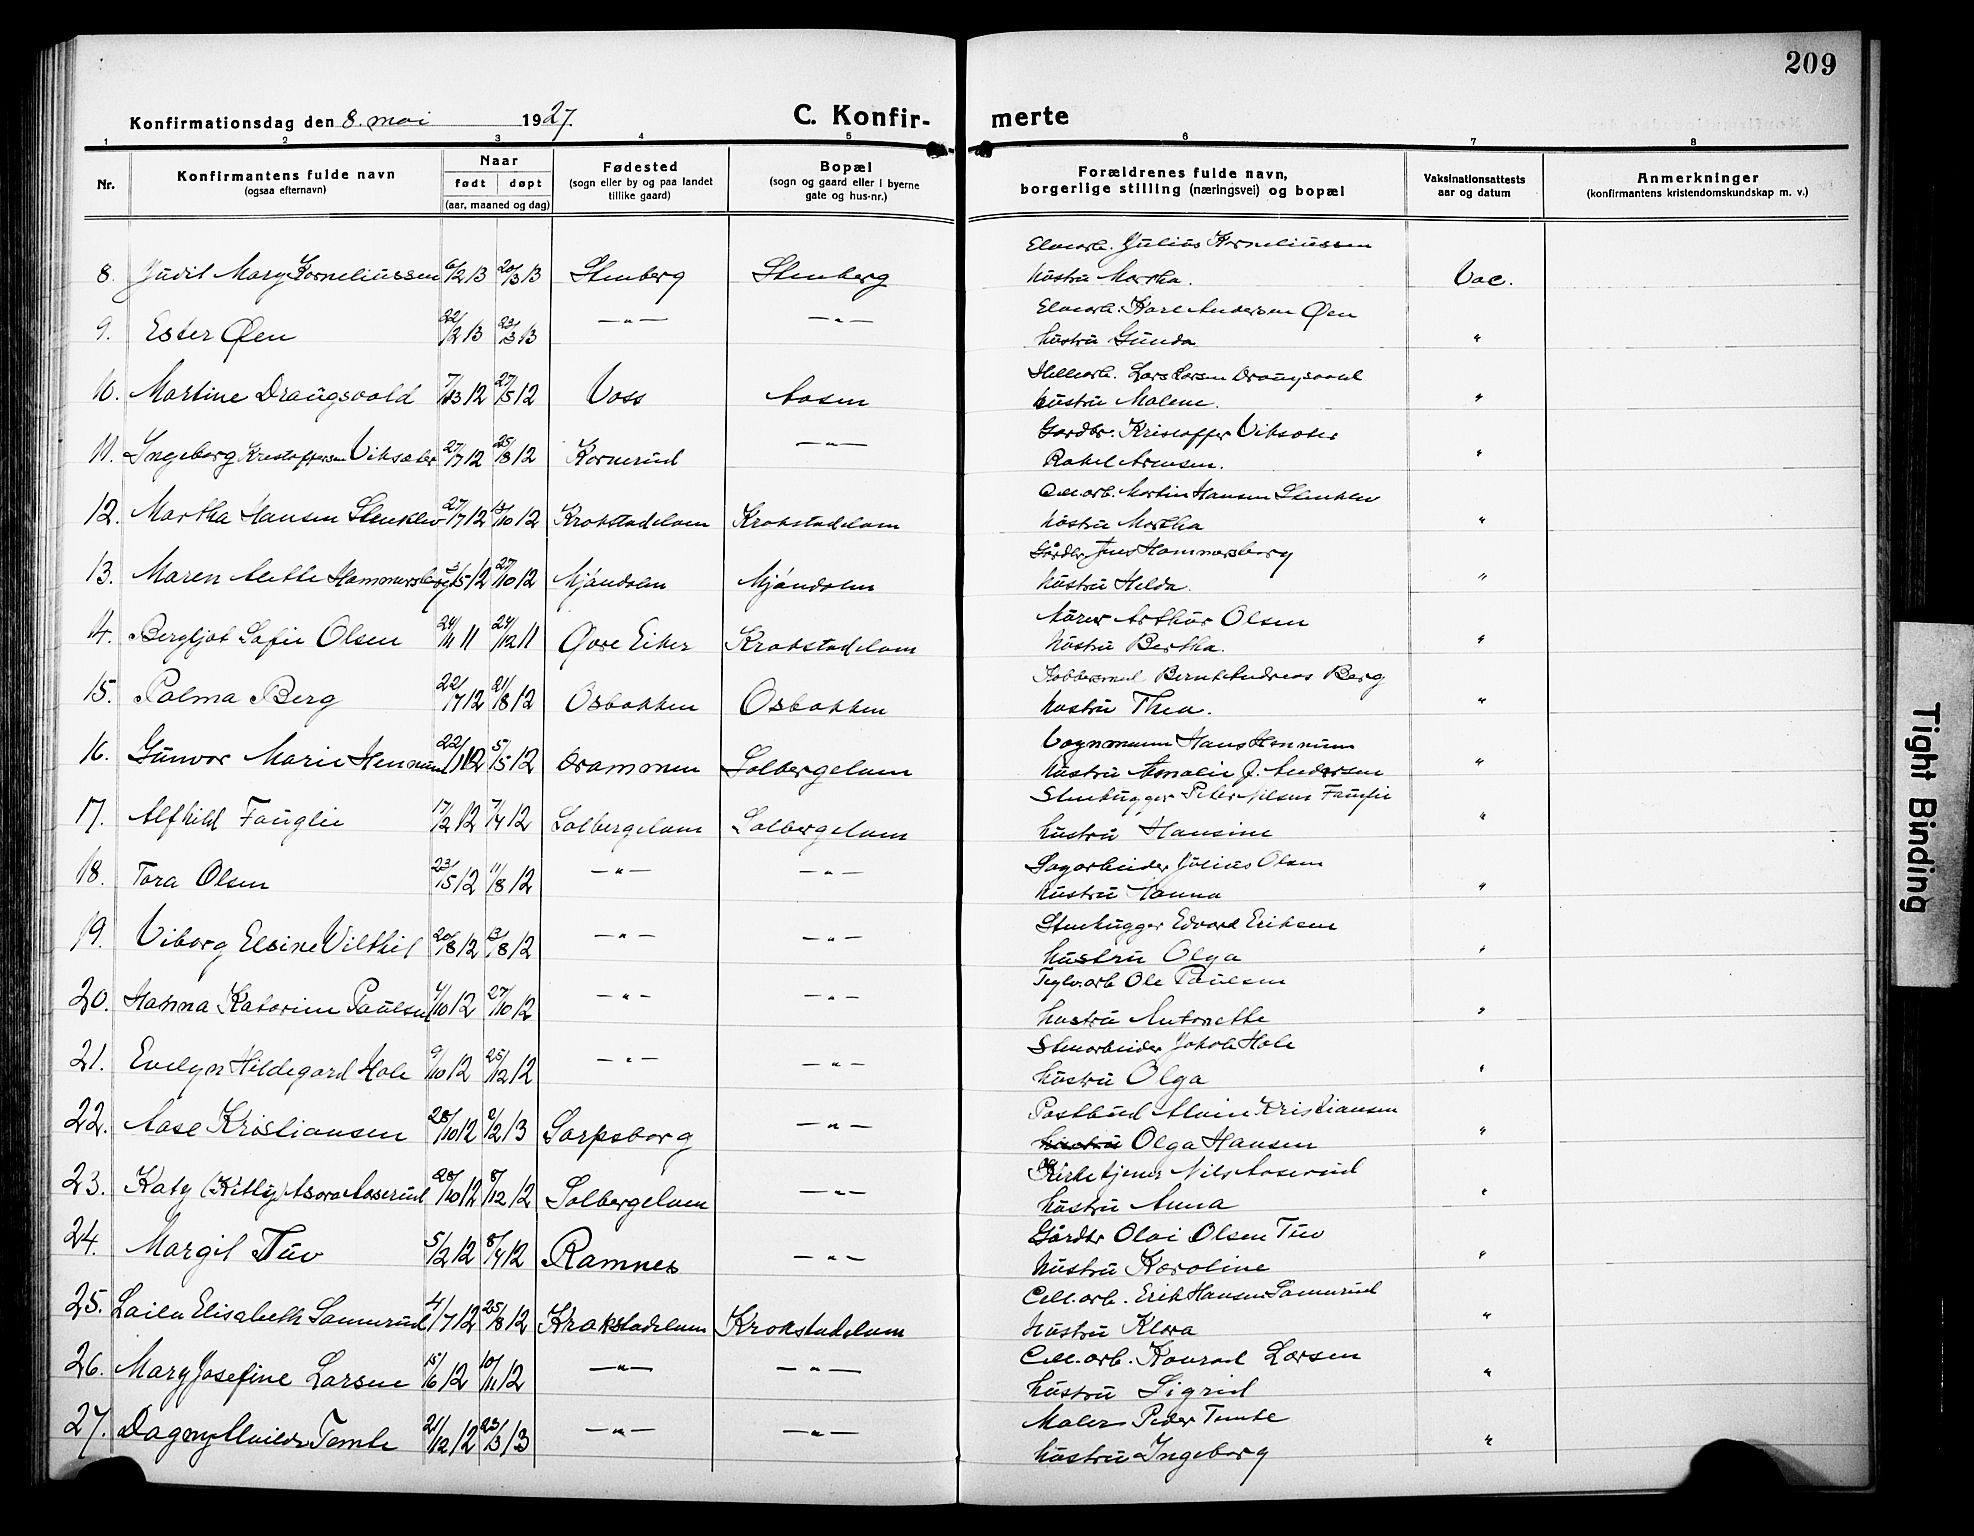 209
Konfirmationsdag den 8. mai 1927.
C. Konfir-
merte
1 2 3 4 5 6 7 8
Nr.
Konfirmantens fulde navn
(ogsaa efternavn)
Naar
født døpt
(aar, maaned og dag)
Fødested
(sogn eller by og paa landet
tillike gaard)
Bopæl
(sogn og gaard eller i byerne
gate og hus-nr.)
Forældrenes fulde navn,
borgerlige stilling (næringsvei) og bopæl
Vaksinationsattests
aar og datum
Anmerkninger
(konfirmantens kristendomskundskap m. v.)
Elvearb. Julius Korneliussen
8. Judit Mary Korneliussen 6/2 13 20/3 13 Stenberg Stenberg hustru Martha. Vac.
Elvearb. Karl Andersen Øen
9. Ester Øen 22/2 13 23/3 13 —„— —„— hustru Gunda „
Lars Larsen Draugsvold
10. Martine Draugsvold 7/3 12 27/5 12 Voss Aasen hustru Malene. „
Gardbr. Kristoffer Viksæter
11. Ingeborg Kristoffersen Viksæter 27/7 12 25/8 12 Kornerud —„— Rakel Arnesen. „
Cell.arb. Martin Hansen Stenklev
12. Martha Hansen Stenklev 27/7 12 13/10 12 Krokstadelven Krokstadelven hustru Martha „
Gårdbr. Jens Hammersborg
13. Maren Alette Hammersborg /5 12 27/10 12 Mjøndalen Mjøndalen hustru Helda. „
Murer Arthur Olsen
14. Bergljot Sofie Olsen 24/11 11 24/12 11 Øvre Eiker Krokstadelven hustru Bertha. „
Kobbersmed Bernt Andreas Berg
15. Palma Berg 22/7 12 21/8 12 Osbakken Osbakken hustru Thea. „
Vognmann Hans Hennum
16. Gunvor Marie Hennum 22/1 12 5/5 12 Drammen Solbergelven hustru Amalie J. Andersen „
Stenhugger Peter Nilsen Fauglie
17. Alfhild Fauglie 17/2 12 7/4 12 Solbergelven Solbergelven hustru Hansine „
Sagarbeider Julius Olsen
18. Tora Olsen 23/5 12 11/8 12 —„— —„— hustru Hanna „
Stenhugger Edvard Eriksen
19. Viborg Elsine Vilthil 20/8 12 /8 12 —„— —„— hustru Olga „
Teglv.arb Ole Paulsen
20. Hanna Katarine Paulsen 1/10 12 27/10 12 —„— —„— hustru Antonette „
Stenarbeider Jakob Hole
21. Evelyn Hildegard Hole 9/10 12 25/12 12 —„— —„— hustru Olga „
Postbud Alvin Kristiansen
22. Aase Kristiansen 28/10 12 2/2 13 Sarpsborg —„— hustru Olga Hansen „
Kirketjener Nils Aaserud
23. Katy (Kitty) Asora Aaserud 28/10 12 8/12 12 Solbergelven —„— hustru Anna „
Gårdbr Olai Olsen Tuv
24. Margit Tuv 5/2 12 8/4 12 Ramnes —„— hustru Karoline „
Cell.arb. Erik Hansen Samurud
25. Laila Elisabeth Samurud 4/7 12 25/8 12 Krokstadelven Krokstadelven hustru Klara „
Cell.arb. Konrad Larsen
26. Mary Josefine Larsen 15/6 12 10/11 12 —„— —„— hustru Sigrid „
Maler Peder Temte
27. Dagny Alvilde Temte 21/12 12 23/3 13 —„— —„— hustru Ingeborg „
Tight Binding